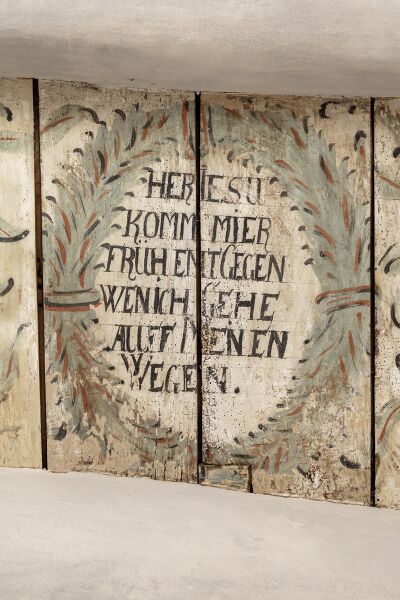 HER IESU
KOMM MIER
FRÜH ENTGEGEN
WEN ICH GEHE
AUFF MEN EN
WEGEN.